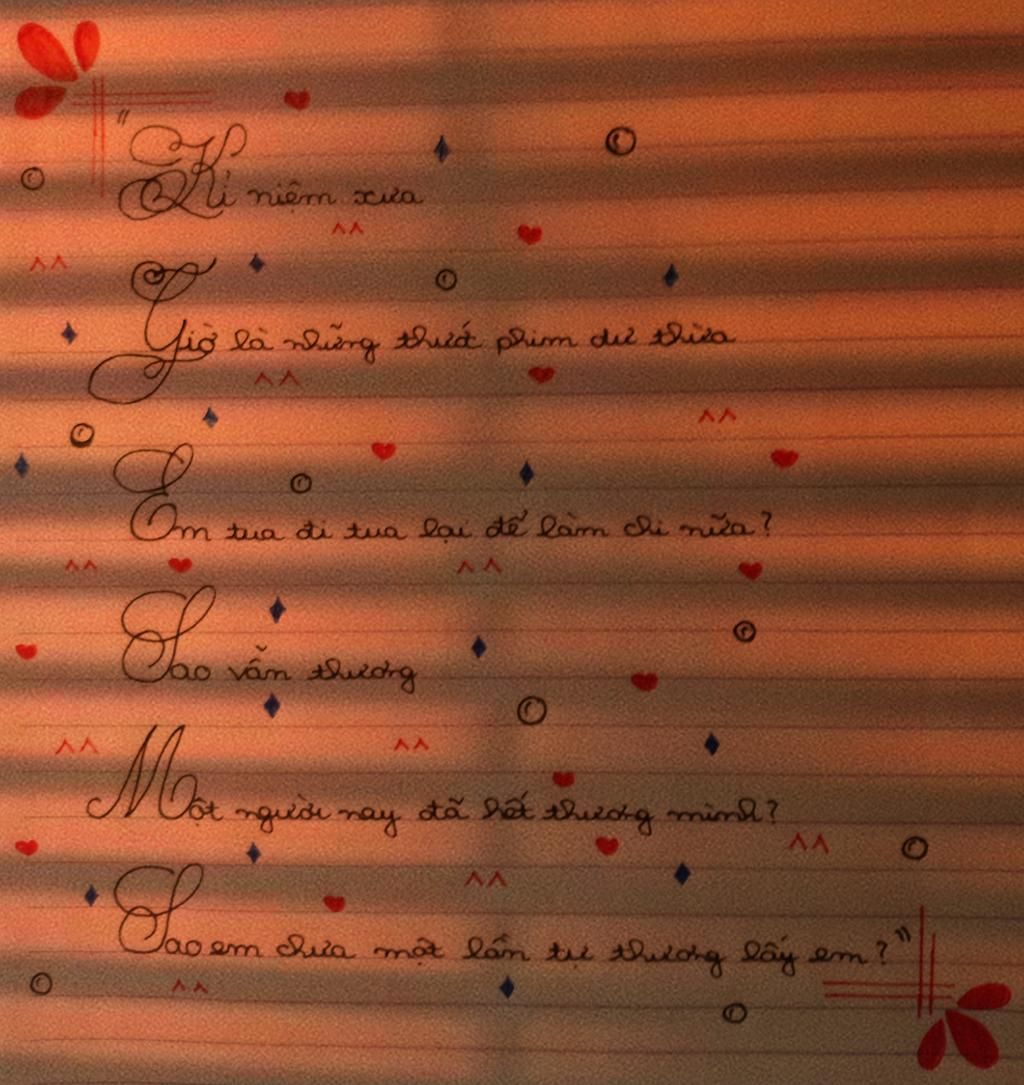 "Kỉ niệm xưa
Giờ là những thướt phim dư thừa
Em tua đi tua lại để làm chi nữa?
Sao vẫn thương
Một người nay đã hết thương mình?
Sao em chưa một lần tự thương lấy em?"